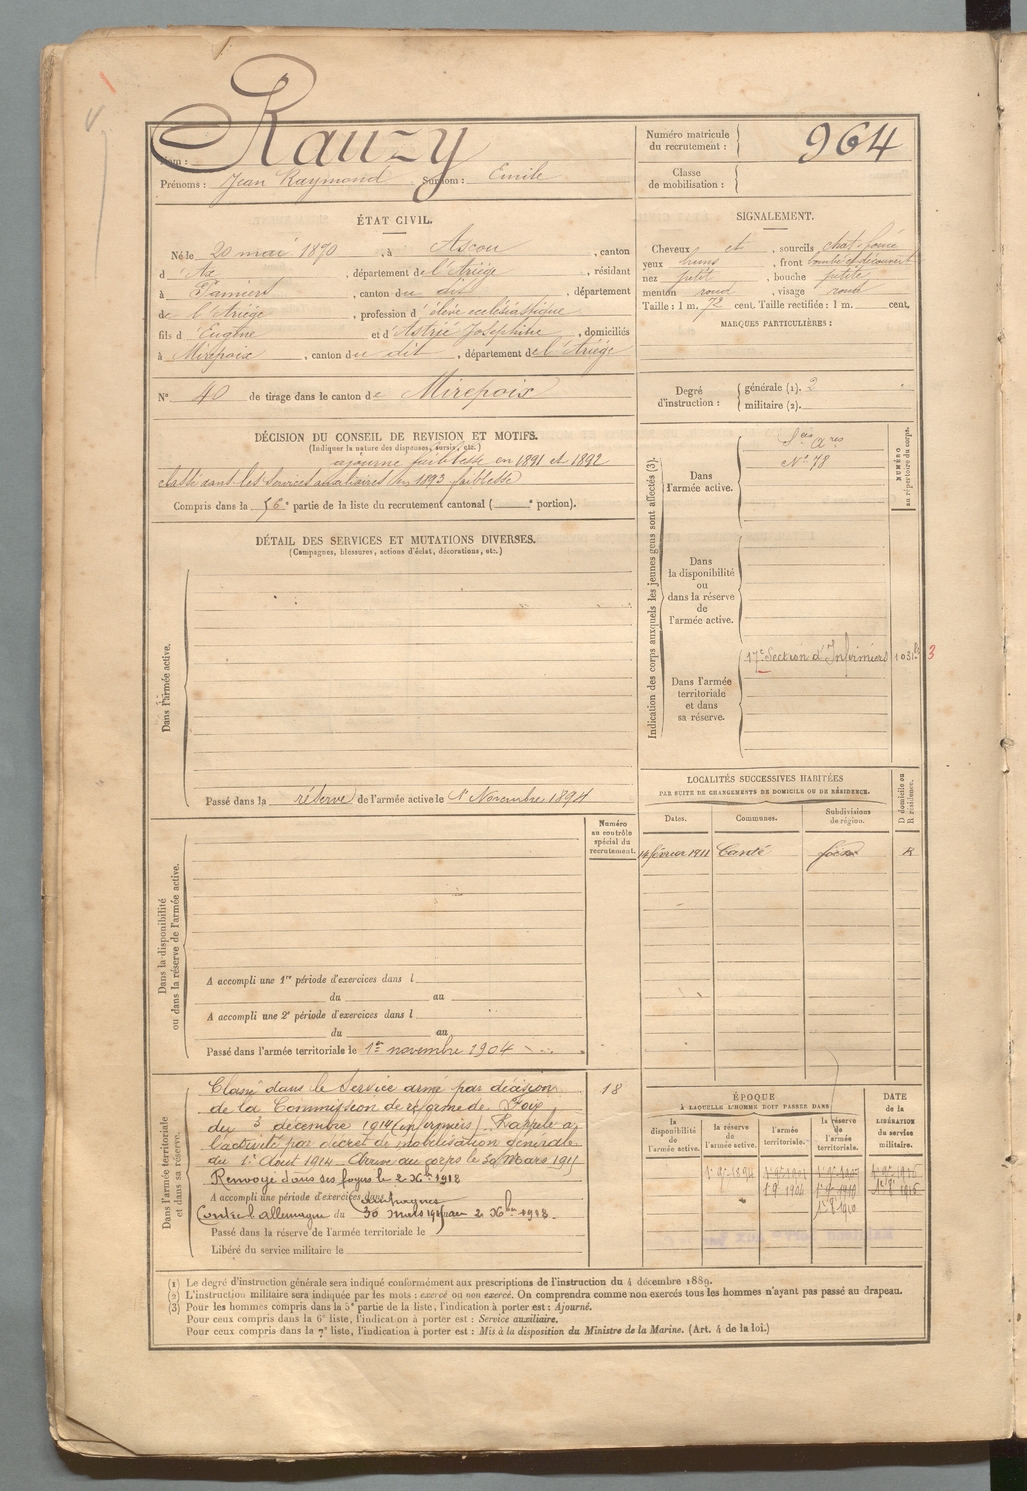 Nom : Rauzy
Prénoms : Jean Raymond Surnom : Emile
Numéro matricule du recrutement : 964
Classe de mobilisation :
ÉTAT CIVIL.
Né le 20 mai 1870, à Ascou, canton
d'Ax, département de l'Ariège, résidant
à Pamiers, canton du dit, département
de l'Ariège, profession d'élève ecclésiastique
fils d'Eugène et d'Astrié Joséphine, domiciliés
à Mirepoix, canton du dit, département de l'Ariège
N° 40 de tirage dans le canton de Mirepoix
SIGNALEMENT.
Cheveux et, sourcils chat. foncé
yeux bruns, front bombé et découvert
nez petit, bouche petite
menton rond, visage rond
Taille : 1 m. 72 cent. Taille rectifiée : 1 m. cent.
MARQUES PARTICULIÈRES :
Degré d'instruction : générale (1). 2
militaire (2).
DÉCISION DU CONSEIL DE REVISION ET MOTIFS.
(Indiquer la nature des dispenses, sursis, etc.)
ajourné faiblesse en 1891 et 1892
classé dans les services auxiliaires en 1893 faiblesse
Compris dans la 6e partie de la liste du recrutement cantonal ( e portion).
DÉTAIL DES SERVICES ET MUTATIONS DIVERSES.
(Campagnes, blessures, actions d'éclat, décorations, etc.)
Dans l'armée active.
Passé dans la réserve de l'armée active le 1r Novembre 1894
Indication des corps auxquels les jeunes gens sont affectés (3).
NUMÉRO au répertoire du corps.
Dans l'armée active.
Sces Ares
N° 78
Dans la disponibilité ou dans la réserve de l'armée active.
Dans l'armée territoriale et dans sa réserve.
17e Section d'Infirmiers
3
LOCALITÉS SUCCESSIVES HABITÉES
PAR SUITE DE CHANGEMENTS DE DOMICILE OU DE RÉSIDENCE.
Dates. Communes. Subdivisions de région. D domicile ou R résidence.
14 février 1911 Canté foix R
Numéro au contrôle spécial du recrutement.
Dans la disponibilité ou dans la réserve de l'armée active.
A accompli une 1re période d'exercices dans l
du au
A accompli une 2e période d'exercices dans l
du au
Passé dans l'armée territoriale le 1er novembre 1904
Dans l'armée territoriale et dans sa réserve.
Classé dans le Service armé par décision 18
de la Commission de réforme de Foix
du 3 décembre 1914 (infirmiers) Rappelé à
l'activité par décret de mobilisation générale
du 1r Aout 1914 Arrivé au corps le 30 Mars 191
Renvoyé dans ses foyers le 2 Xbre 1918
A accompli une période d'exercices dans Campagnes
Contre l'allemagne du 30 mars au 2 Xbre 1918
Passé dans la réserve de l'armée territoriale le
Libéré du service militaire le
ÉPOQUE
À LAQUELLE L'HOMME DOIT PASSER DANS
DATE de la LIBÉRATION du service militaire.
la disponibilité de l'armée active. la réserve de l'armée active. l'armée territoriale. la réserve de l'armée territoriale.
(1) Le degré d'instruction générale sera indiqué conformément aux prescriptions de l'instruction du 4 décembre 1889.
(2) L'instruction militaire sera indiquée par les mots : exercé ou non exercé. On comprendra comme non exercés tous les hommes n'ayant pas passé au drapeau.
(3) Pour les hommes compris dans la 5e partie de la liste, l'indication à porter est : Ajourné.
Pour ceux compris dans la 6e liste, l'indication à porter est : Service auxiliaire.
Pour ceux compris dans la 7e liste, l'indication à porter est : Mis à la disposition du Ministre de la Marine. (Art. 4 de la loi.)